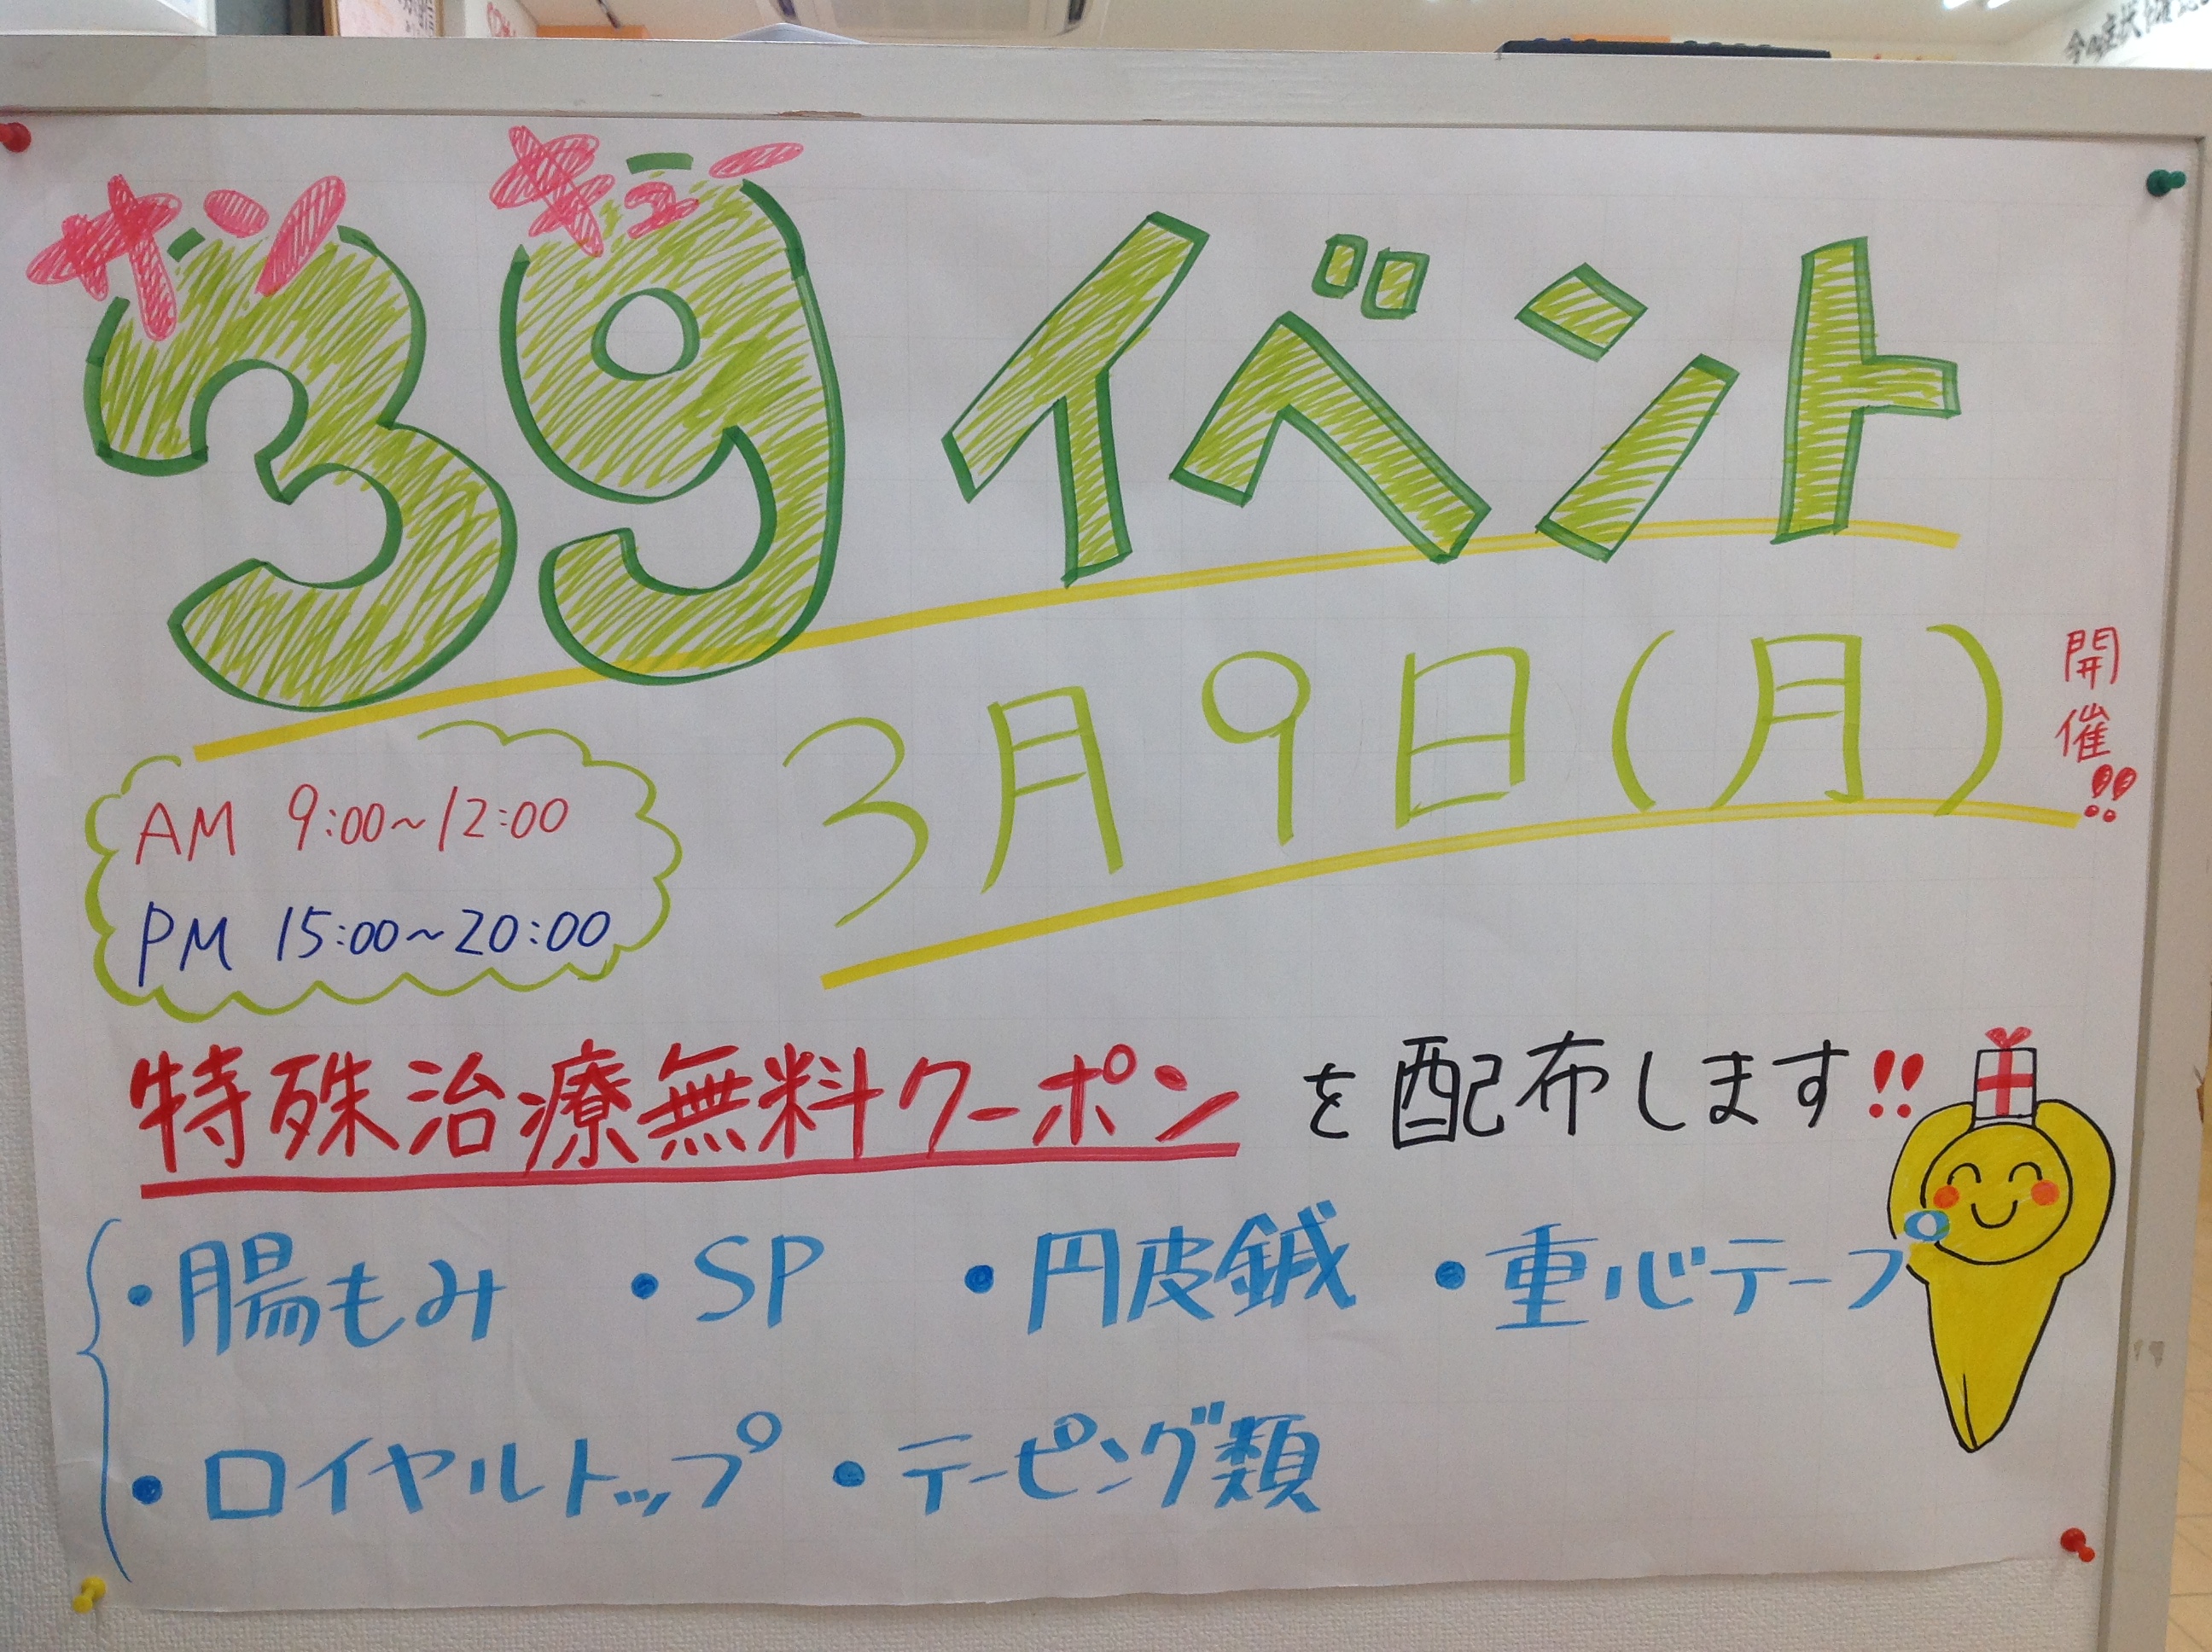 今の症状
サンキュー
39イベント
3月9日(月)
開催!!
AM 9:00~12:00
PM 15:00~20:00
特殊治療無料クーポンを配布します!!
・腸もみ ・SP ・円皮鍼 ・重心テープ
・ロイヤルトップ ・テーピング類